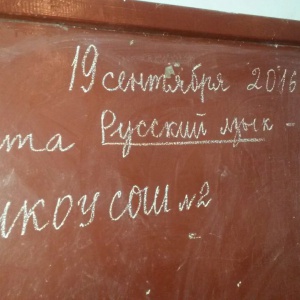 19 сентября 2016
Русский язык -
МКОУ СОШ №2